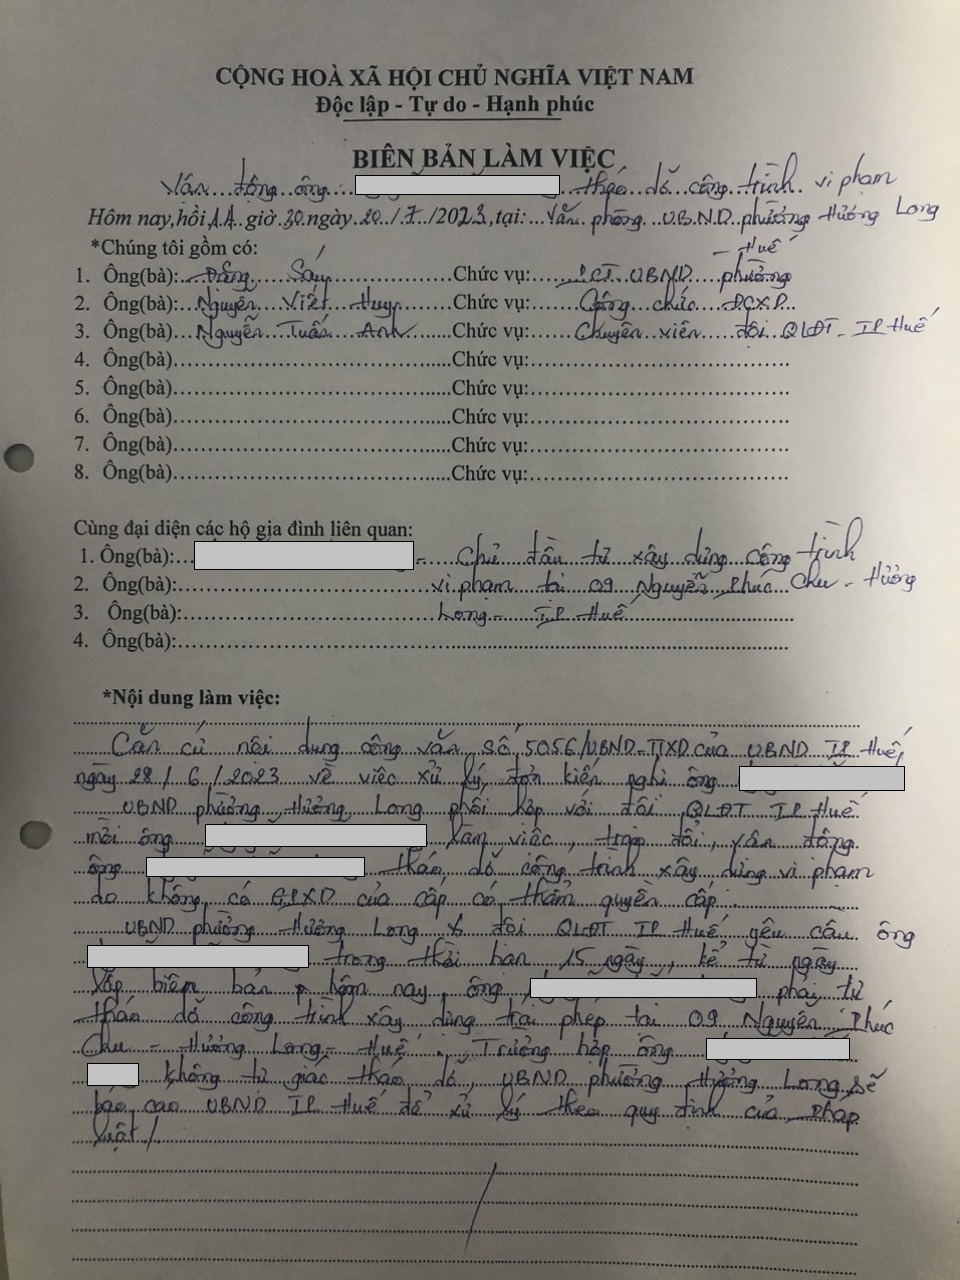 CỘNG HOÀ XÃ HỘI CHỦ NGHĨA VIỆT NAM
Độc lập - Tự do - Hạnh phúc
BIÊN BẢN LÀM VIỆC
Vận động ông tháo dỡ công trình vi phạm
Hôm nay, hồi 14 giờ 30 ngày 20/7/2023, tại: Văn phòng UBND phường Hương Long
- Huế
*Chúng tôi gồm có:
1. Ông(bà): Đặng Sáy Chức vụ: PCT. UBND phường
2. Ông(bà): Nguyễn Viết Huy Chức vụ: Công chức ĐCXD
3. Ông(bà): Nguyễn Tuấn Anh Chức vụ: Chuyên viên đội QLĐT - TP Huế
4. Ông(bà) Chức vụ:
5. Ông(bà) Chức vụ:
6. Ông(bà) Chức vụ:
7. Ông(bà) Chức vụ:
8. Ông(bà) Chức vụ:
Cùng đại diện các hộ gia đình liên quan:
1. Ông(bà): - Chủ đầu tư xây dựng công trình
2. Ông(bà): vi phạm tại 09 Nguyễn Phúc Chu - Hương
3. Ông(bà): Long - TP Huế
4. Ông(bà):
*Nội dung làm việc:
Căn cứ nội dung công văn số 5056/UBND-TTXD của UBND TP Huế,
ngày 28/6/2023 về việc xử lý đơn kiến nghị ông
UBND phường Hương Long phối hợp với đội QLĐT TP Huế
mời ông làm việc, trao đổi, vận động
ông tháo dỡ công trình xây dựng vi phạm
do không có GPXD của cấp có thẩm quyền cấp.
UBND phường Hương Long & đội QLĐT TP Huế yêu cầu ông
trong thời hạn 15 ngày, kể từ ngày
lập biên bản hôm nay, ông phải tự
tháo dỡ công trình xây dựng trái phép tại 09 Nguyễn Phúc
Chu - Hương Long - Huế. Trường hợp ông
không tự giác tháo dỡ, UBND phường Hương Long sẽ
báo cáo UBND TP Huế để xử lý theo quy định của pháp
luật /